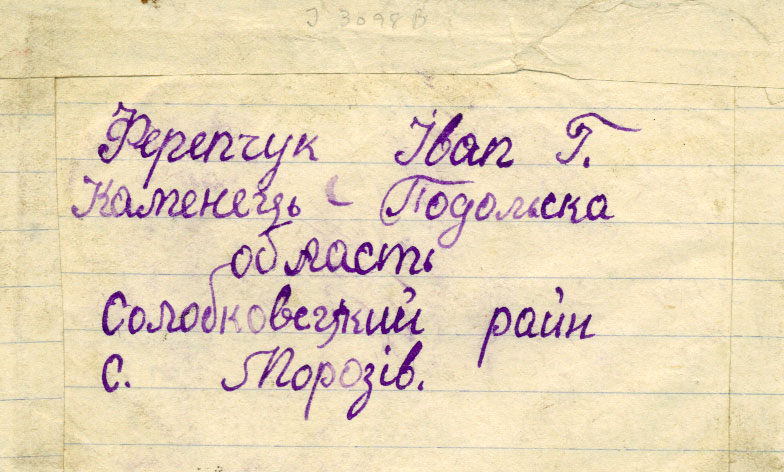 J 3098B
Ферепчук Івап Г.
Каменець - Подольска
область
Солобковецкий райн
с. Морозів.